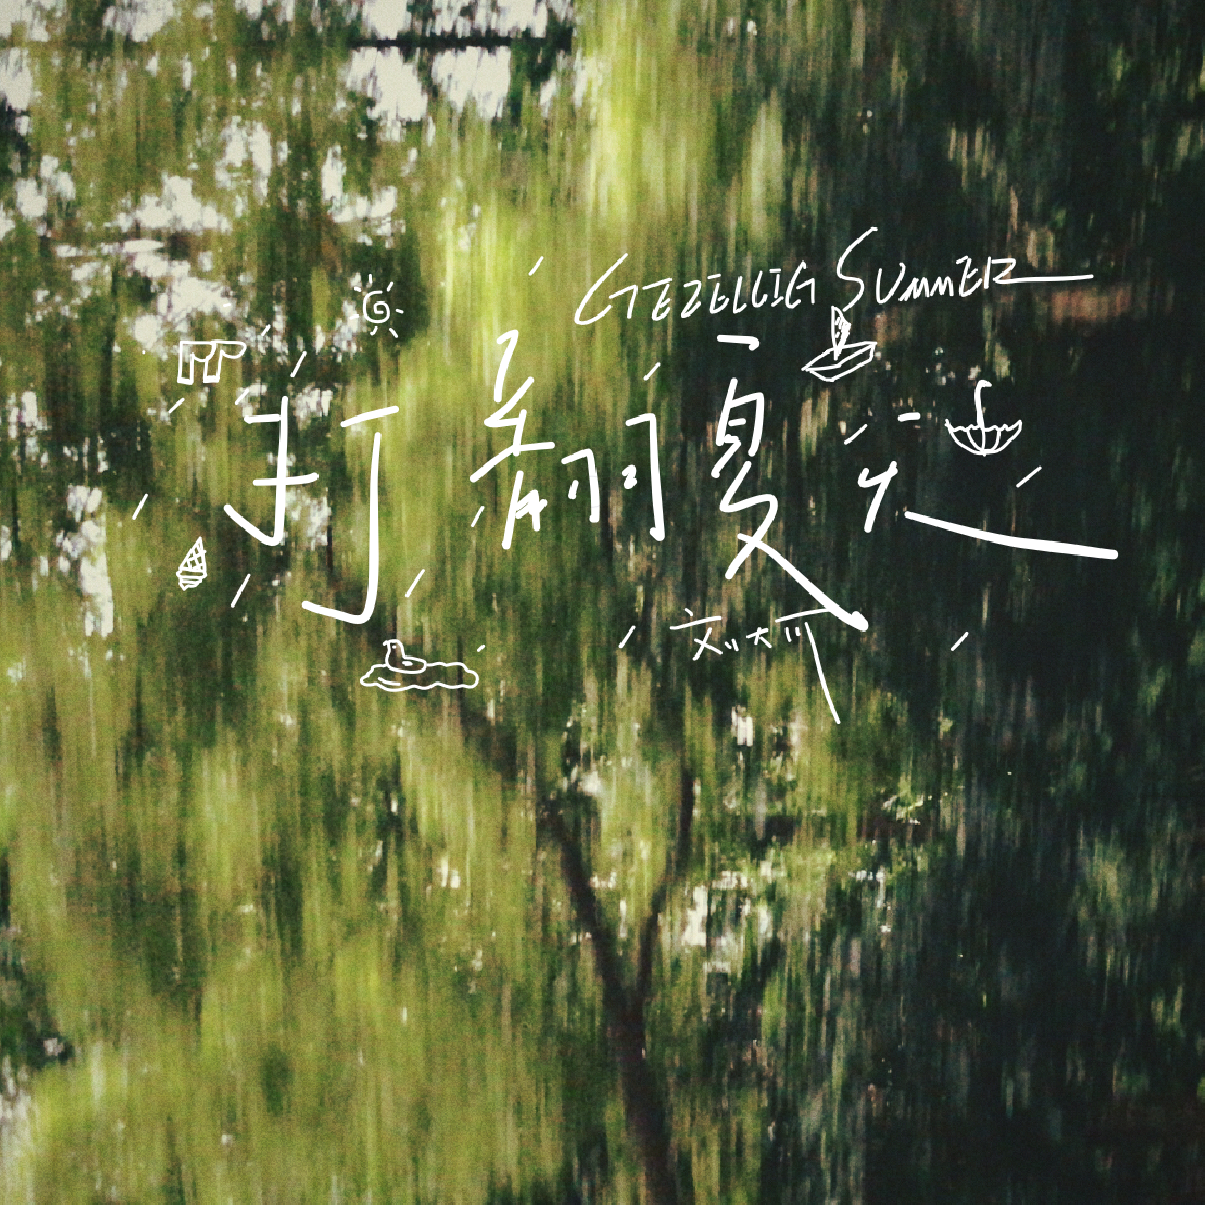 GEZELLIG SUMMER
打翻夏天
刘大可